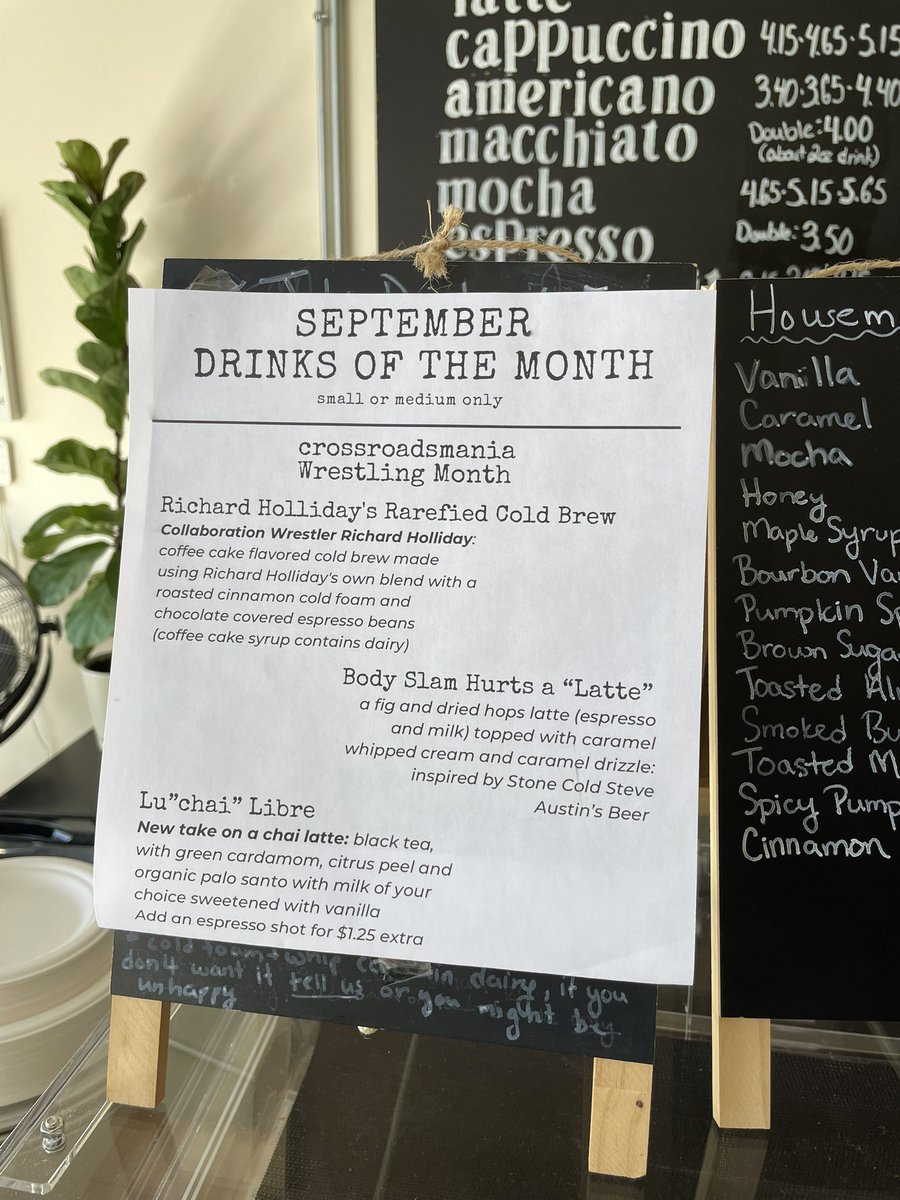 latte
cappuccino 4.15·4.65·5.15
americano 3.40·3.65·4.40
macchiato Double: 4.00
(about 2oz drink)
mocha 4.65·5.15·5.65
espresso Double: 3.50
SEPTEMBER
DRINKS OF THE MONTH
small or medium only
crossroadsmania
Wrestling Month
Richard Holliday's Rarefied Cold Brew
Collaboration Wrestler Richard Holliday:
coffee cake flavored cold brew made
using Richard Holliday's own blend with a
roasted cinnamon cold foam and
chocolate covered espresso beans
(coffee cake syrup contains dairy)
Body Slam Hurts a “Latte”
a fig and dried hops latte (espresso
and milk) topped with caramel
whipped cream and caramel drizzle:
inspired by Stone Cold Steve
Austin’s Beer
Lu”chai” Libre
New take on a chai latte: black tea,
with green cardamom, citrus peel and
organic palo santo with milk of your
choice sweetened with vanilla
Add an espresso shot for $1.25 extra
cold foam + whip in dairy, if you
don't want it tell us or you might be
unhappy
Housem
Vanilla
Caramel
Mocha
Honey
Maple Syrup
Bourbon Van
Pumpkin Sp
Brown Suga
Toasted Al
Smoked Bu
Toasted M
Spicy Pump
Cinnamon